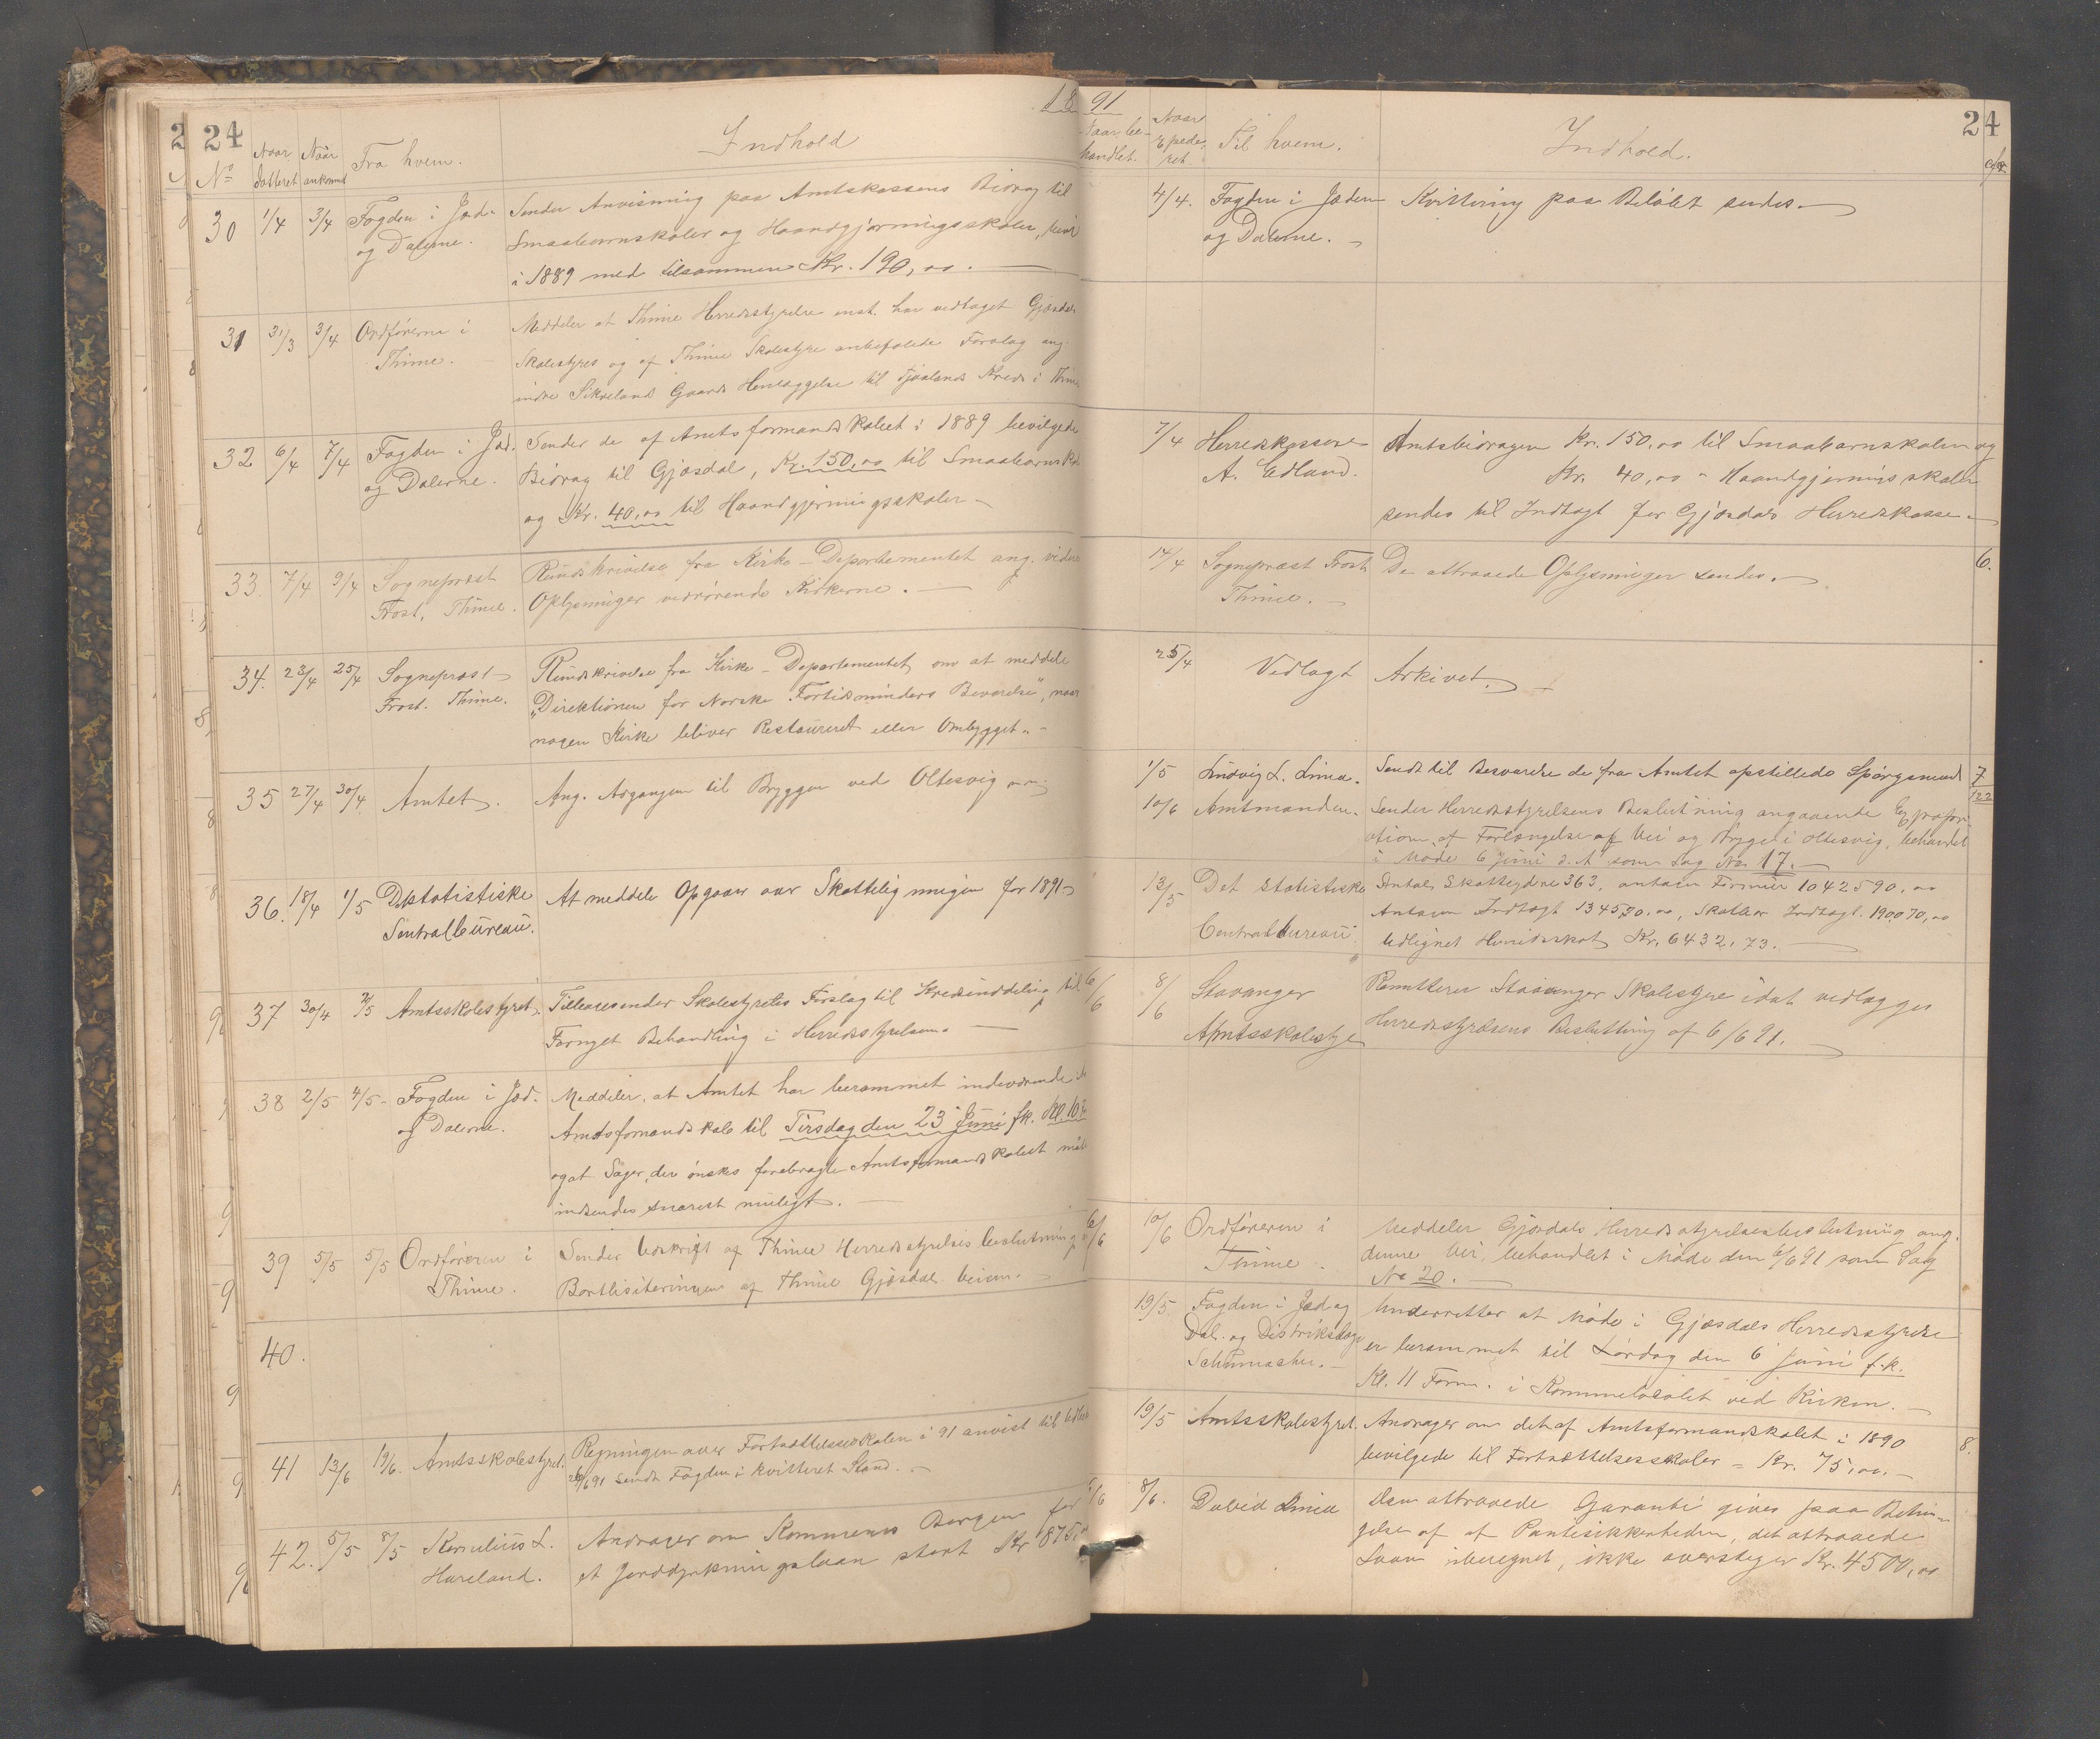 24
1891
24
No
Naar datteret
Naar ankommet
Fra hvem.
Indhold
30 1/4 3/4 Fogden i Jæd. og Dalerne.
Sender Anvisning paa Amtskassens Bidrag til
Smaabarnskoler og Haandgjerningsskoler,
i 1889 med tilsammen Kr. 190,00.
31 31/3 3/4 Ordføreren i Thime.
Meddeler at Thime Herredsstyrelse enst. har vedtaget Gjæsdals
Skolestyres og af Thime Skolestyre anbefalede Forslag ang.
indre Sikvelands Gaards Henlæggelse til Tjaalands Kreds i Thime
32 6/4 7/4 Fogden i Jæd. og Dalerne.
Sender de af Amtsformandskabet i 1889 bevilgede
Bidrag til Gjæsdal, Kr. 150,00 til Smaabarnsk
og Kr. 40,00 til Haandgjerningsskoler
33. 7/4 9/4 Sogneprest Frost, Thime.
Rundskrivelse fra Kirke-Departementet ang. videre
Oplysninger vedrørende Kirkerne.
34. 23/4 25/4 Sogneprest Frost. Thime.
Rundskrivelse fra Kirke-Departementet om at meddele
"Direktionen for Norske Fortidsminders Bevarelse", naar
nogen Kirke bliver Restaureret eller Ombygget.
35 27/4 30/4 Amtet.
Ang. Adgangen til Bryggen ved Oltesvig
36. 18/4 1/5 Det statistiske Sentralbureau.
At meddele Opgave over Skatteligningen for 1891
37 30/4 3/5 Amtsskolestyret.
Tilbagesender Skolestyrets Forslag til Kredsinddeling til
Fornyet Behandling i Herredsstyrelsen.
38 2/5 4/5 Fogden i Jæd. og Dalerne.
Meddeler, at Amtet har berammet indeværende
Amtsformandskab til Tirsdag den 23 Juni fk. Kl. 10
ogat Sager, der ønskes forebragte Amtsformandskabet maa
indsendes snarest muligt.
39 5/5 5/5 Ordføreren i Thime.
Sender Udskrift af Thime Herredsstyrelses beslutning
Bortlisiteringen af Thime Gjæsdal veien.
40.
41 13/6 19/6. Amtsskolestyret.
Regningen over Fortsættelsesskolen i 91 anvist til
26/6 91 sendt Fogden i kvitteret Stand.
42. 5/5 8/5 Kornelius L. Haveland.
Andrager om Kommunens Borgen for
et Jorddyrkningslaan stort Kr 875,00
Naar behandlet.
Naar Expederet
Til hvem.
Indhold.
4/4. Fogden i Jæderen og Dalerne.
Kvittering paa Beløbet sendes.
7/4 Herredskasserer A. Edland.
Amtsbidragen Kr. 150,00 til Smaabarnskolen og
Kr. 40,00 " Haandgjernings skolen
sendes til Indtægt for Gjæsdals Herredskasse.
14/4 Sogneprest Frost Thime.
De attraaede Oplysninger sendes.
6.
25/4 Vedlagt Arkivet.
1/5 Ludvig L. Limea.
Sendt til Besvarelse de fra Amtet opstillede Spørgsmaal
7
122
10/6 Amtmanden.
Sender Herredsstyrelsens Beslutning angaaende Expropri-
ation af Forlængelse af Vei og Brygge i Oltesvig, behandlet
i Møde 6 juni d. A som sag No. 17.
13/5 Det statistiske Centralbureau
Antal Skatteydere 363, antagen Formue 1042590,00
Antagen Indtægt 134530,00, Skatbar Indtægt. 190070,00
Udlignet Herredsskat Kr. 6432,73.
6/6 8/6 Stavanger Amtsskolestyre
Remitteres Stavanger Skolestyre idet vedlægges
Herredsstyrelsens Beslutning af 6/6 91.
6/6 10/6 Ordføreren i Thime
Meddeler Gjæsdals Herredsstyrelses beslutning ang.
denne Vei, behandlet i Møde den 6/6 91 som Sag
No 20.
19/5. Fogden i Jæd og Dal. og Distriktslæge Schumacher.
Underretter at Møde i Gjæsdals Herredsstyrelse
er berammet til Lørdag den 6 Juni f.k.
Kl. 11 Form. i Kommunelokalet ved Kirken.
19/5 Amtsskolestyret.
Andrager om det af Amtsformandskabet i 1890
bevilgede til Fortsættelsesskoler = Kr. 75,00.
8.
6/6 8/6. David Limea
Den attraaede Garanti gives paa Betin-
gelse af at Pantesikkerheden, det attraaede
Laan iberegnet, ikke overstiger Kr. 4500,00